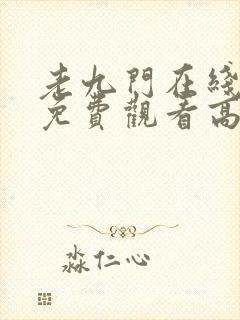 老九門在綫
免費觀看高
淼仁心